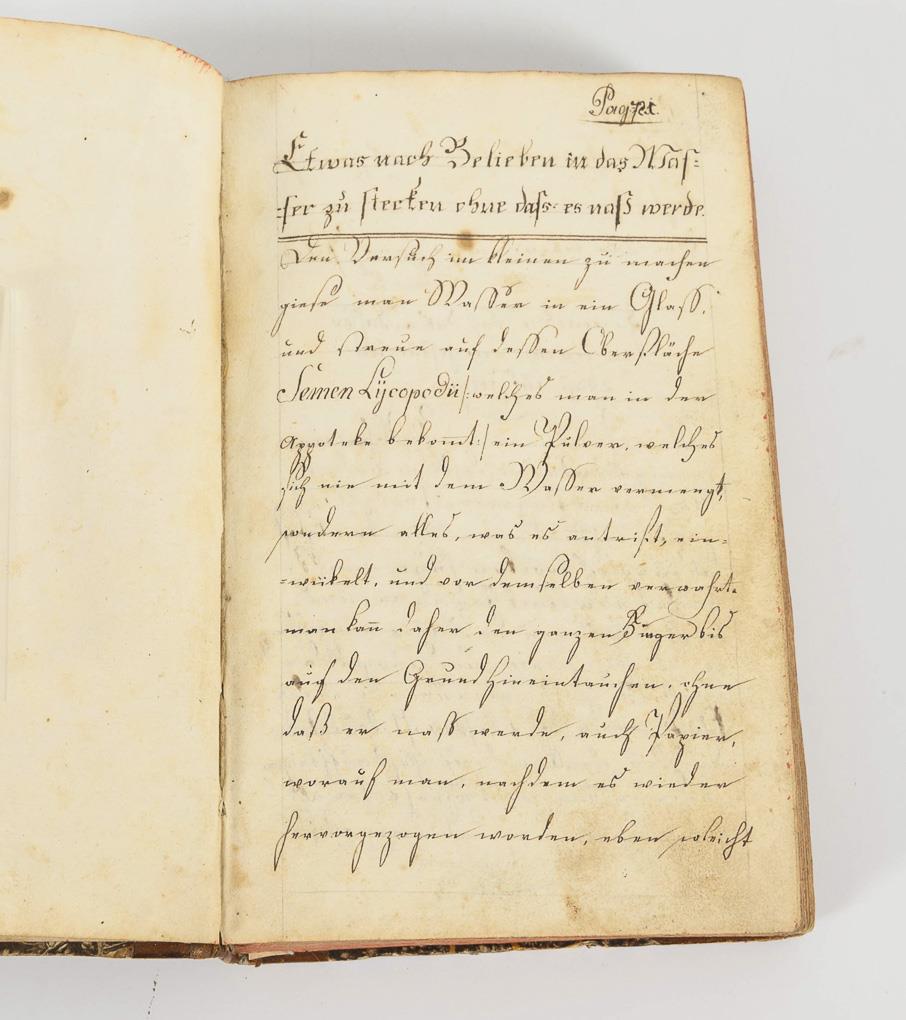 Pag: 1.
Etwas nach Belieben in das Was=
=ser zu stecken ohne dass es nass werde.
Den Versuch im kleinen zu machen
giese man Wasser in ein Glass,
und streue auf dessen Oberfläche
Semen Lÿcopodii /: welches man in der
Appoteke bekom̄t :/ ein Pulver, welches
sich nie mit dem Wasser vermengt,
sondern alles, was es antrift, ein=
=wükelt, und vor demselben verwahrt.
man kan̄ daher den ganzen Finger bis
auf den Grund hineintauchen, ohne
daß er nass werde, auch Papier,
worauf man, nachdem es wieder
hervorgezogen worden, eben soleicht